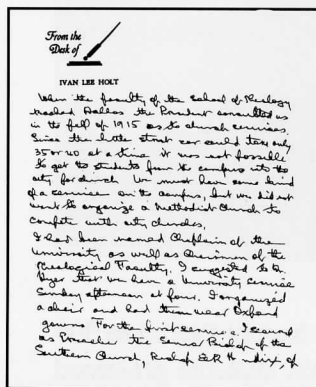 From the
Desk of
IVAN LEE HOLT
When the faculty of the School of Theology
reached Dallas the President consulted us
in the fall of 1915 as to church services.
Since the little street car could take only
35 or 40 at a time it was not possible
to get the students from the campus into the
city for church. We must have some kind
of a service on the campus, but we did not
want to organize a Methodist Church to
compete with city churches.
I had been named Chaplain of the
University as well as Chairman of the
Theological Faculty. I suggested to Dr
Hyer that we have a University service
Sunday afternoon at four. I organized
a choir and had them wear Oxford
gowns. For the first service I secured
as Preacher the Senior Bishop of the
Southern Church, Bishop E R Hendrix, of